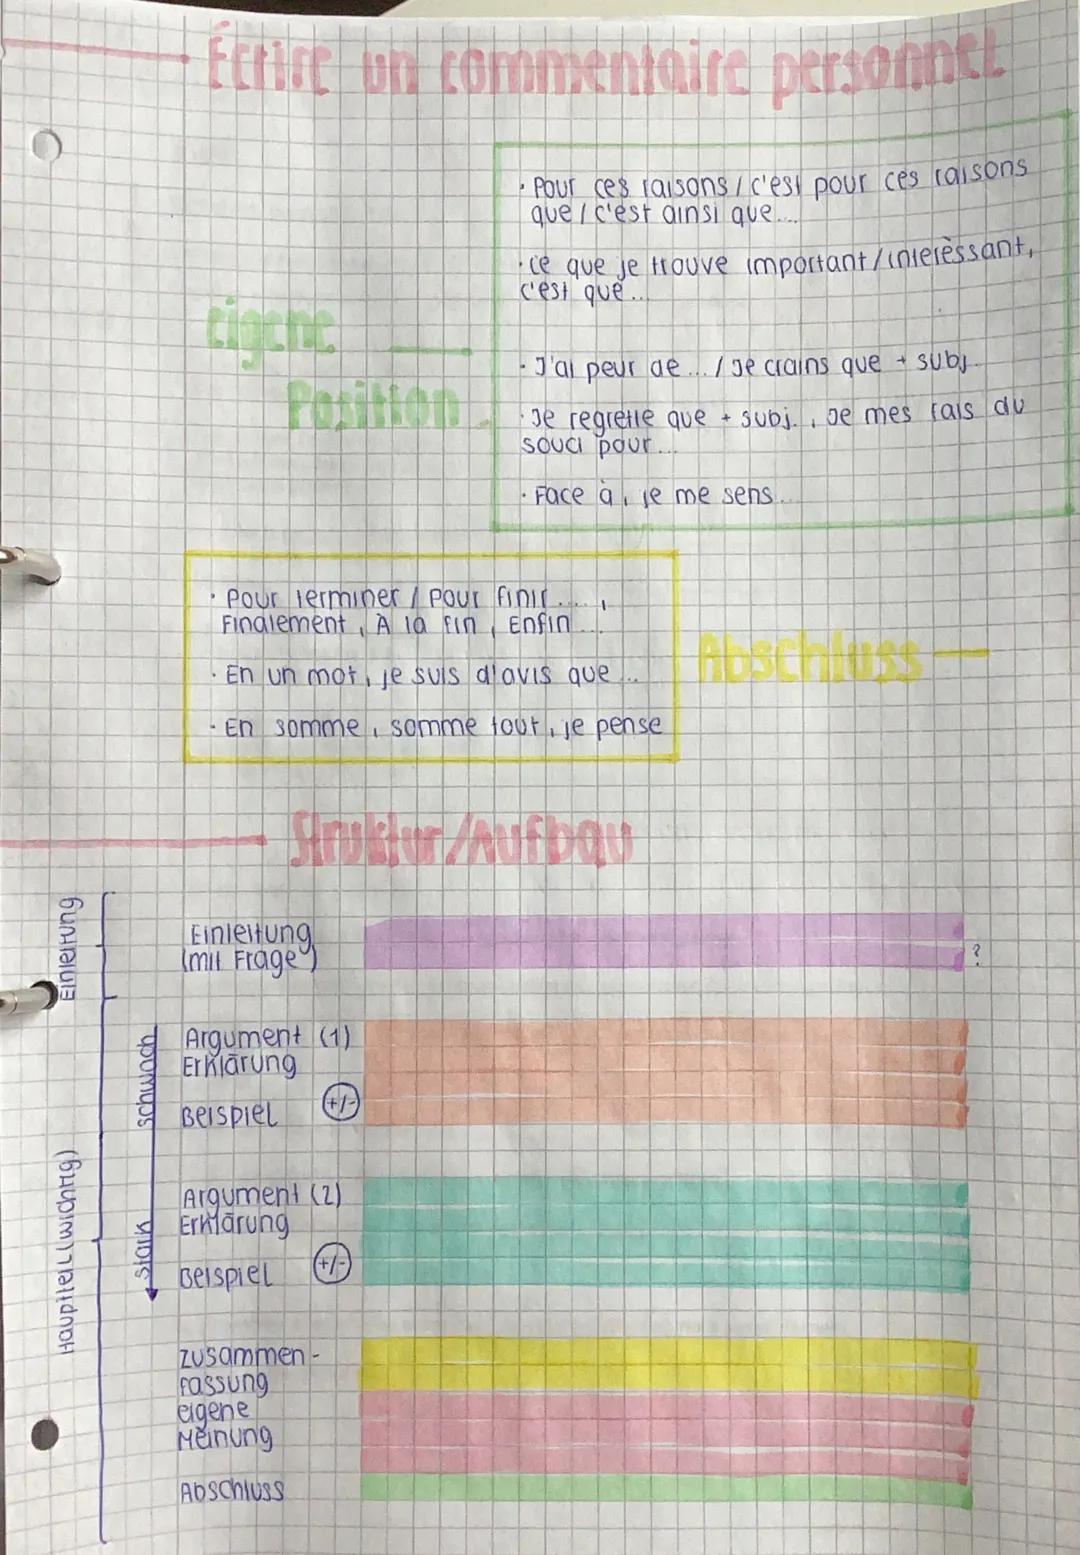 Écrire un commentaire personnel
· Pour ces raisons / c'est pour ces raisons
que / c'est ainsi que...
· ce que je trouve important/interèssant,
c'est que...
eigene
Position
· J'ai peur de ... / Je crains que + subj.
· Je regrette que + subj., Je mes fais du
souci pour...
· Face à, je me sens...
· Pour terminer / pour finir ....,
Finalement, À la fin, Enfin ...
· En un mot, je suis d'avis que ...
· En somme, somme tout, je pense
Abschluss
Struktur/Aufbau
Einleitung
Einleitung
(mit Frage)
?
Hauptteil (wichtig)
schwach
stark
Argument (1)
Erklärung
Beispiel +/-
Argument (2)
Erklärung
Beispiel +/-
Zusammen-
fassung
eigene
Meinung
Abschluss